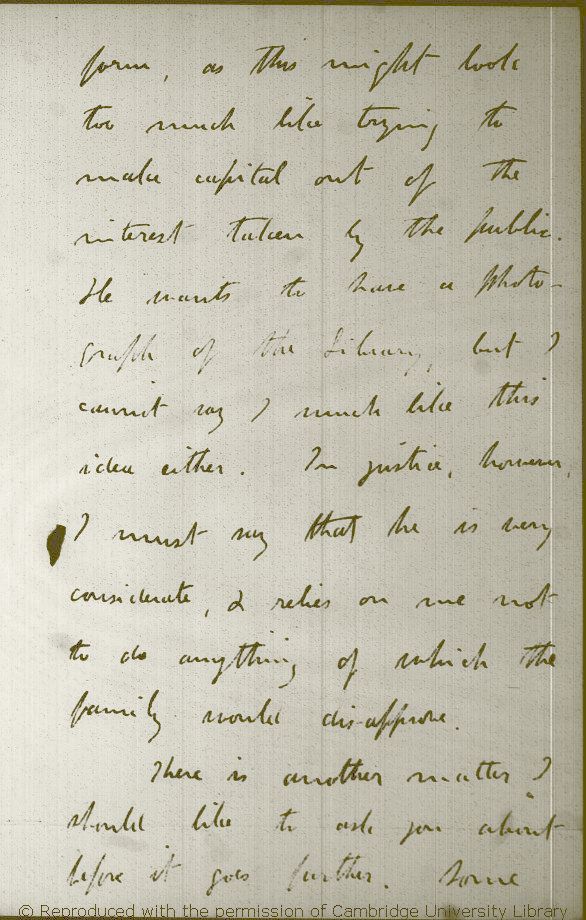 form, as this might look
too much like trying to
make capital out of the
interest taken by the public.
He wants to have a photo-
graph of the Library, but I
cannot say I much like this
idea either. In justice, however,
I must say that he is very
considerate, & relies on me not
to do anything of which the
family would disapprove.
There is another matter I
should like to ask you about
before it goes further. Some
© Reproduced with the permission of Cambridge University Library